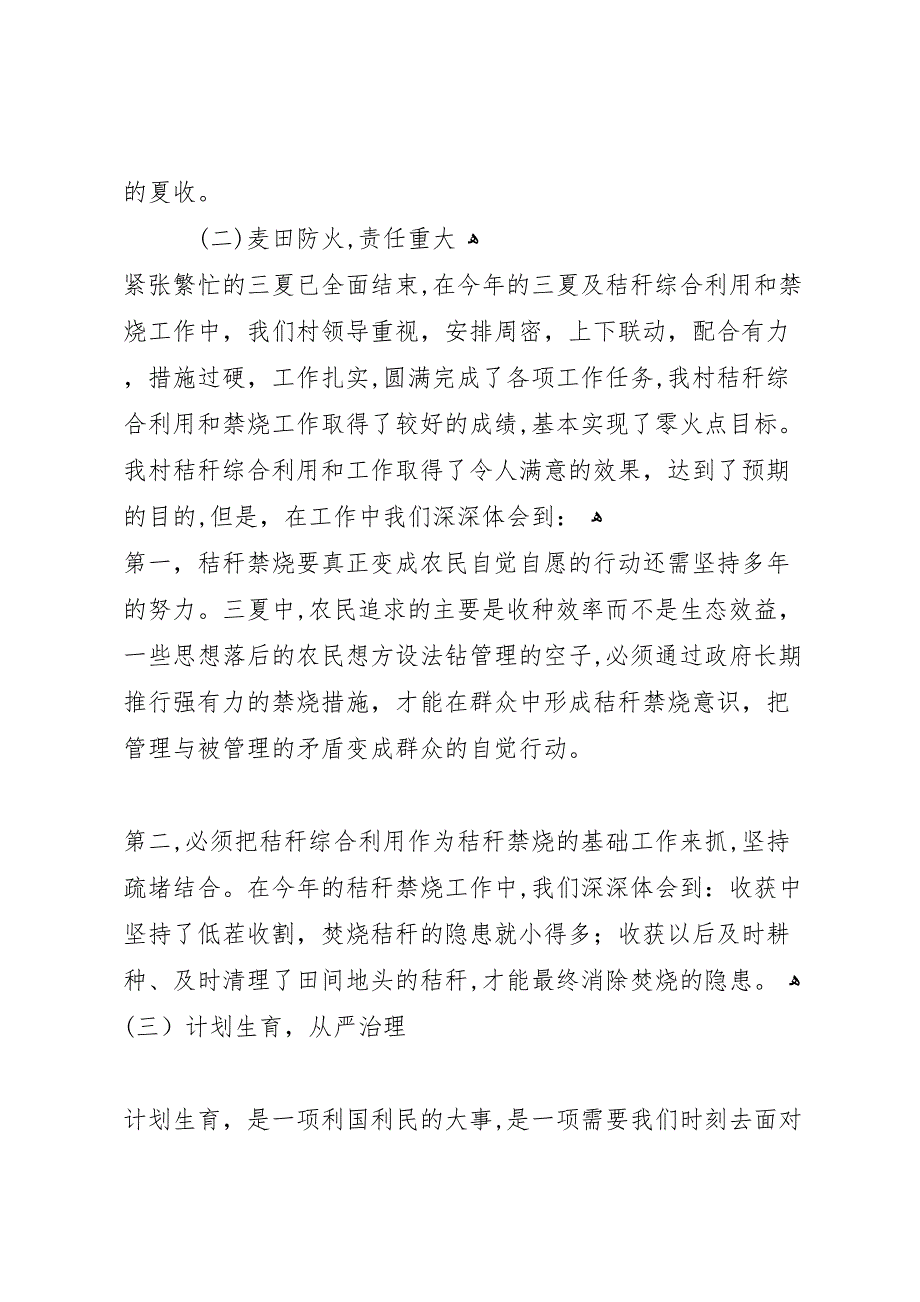 的夏收。
(二)麦田防火,责任重大 ﻫ
紧张繁忙的三夏已全面结束,在今年的三夏及秸秆综合利用和禁
烧工作中，我们村领导重视，安排周密，上下联动，配合有力
，措施过硬，工作扎实,圆满完成了各项工作任务,我村秸秆综
合利用和禁烧工作取得了较好的成绩,基本实现了零火点目标。
我村秸秆综合利用和工作取得了令人满意的效果，达到了预期
的目的,但是，在工作中我们深深体会到： ﻫ
第一，秸秆禁烧要真正变成农民自觉自愿的行动还需坚持多年
的努力。三夏中,农民追求的主要是收种效率而不是生态效益，
一些思想落后的农民想方设法钻管理的空子,必须通过政府长期
推行强有力的禁烧措施，才能在群众中形成秸秆禁烧意识，把
管理与被管理的矛盾变成群众的自觉行动。
第二,必须把秸秆综合利用作为秸秆禁烧的基础工作来抓,坚持
疏堵结合。在今年的秸秆禁烧工作中,我们深深体会到：收获中
坚持了低茬收割，焚烧秸秆的隐患就小得多；收获以后及时耕
种、及时清理了田间地头的秸秆,才能最终消除焚烧的隐患。 ﻫ
(三）计划生育，从严治理
计划生育，是一项利国利民的大事,是一项需要我们时刻去面对